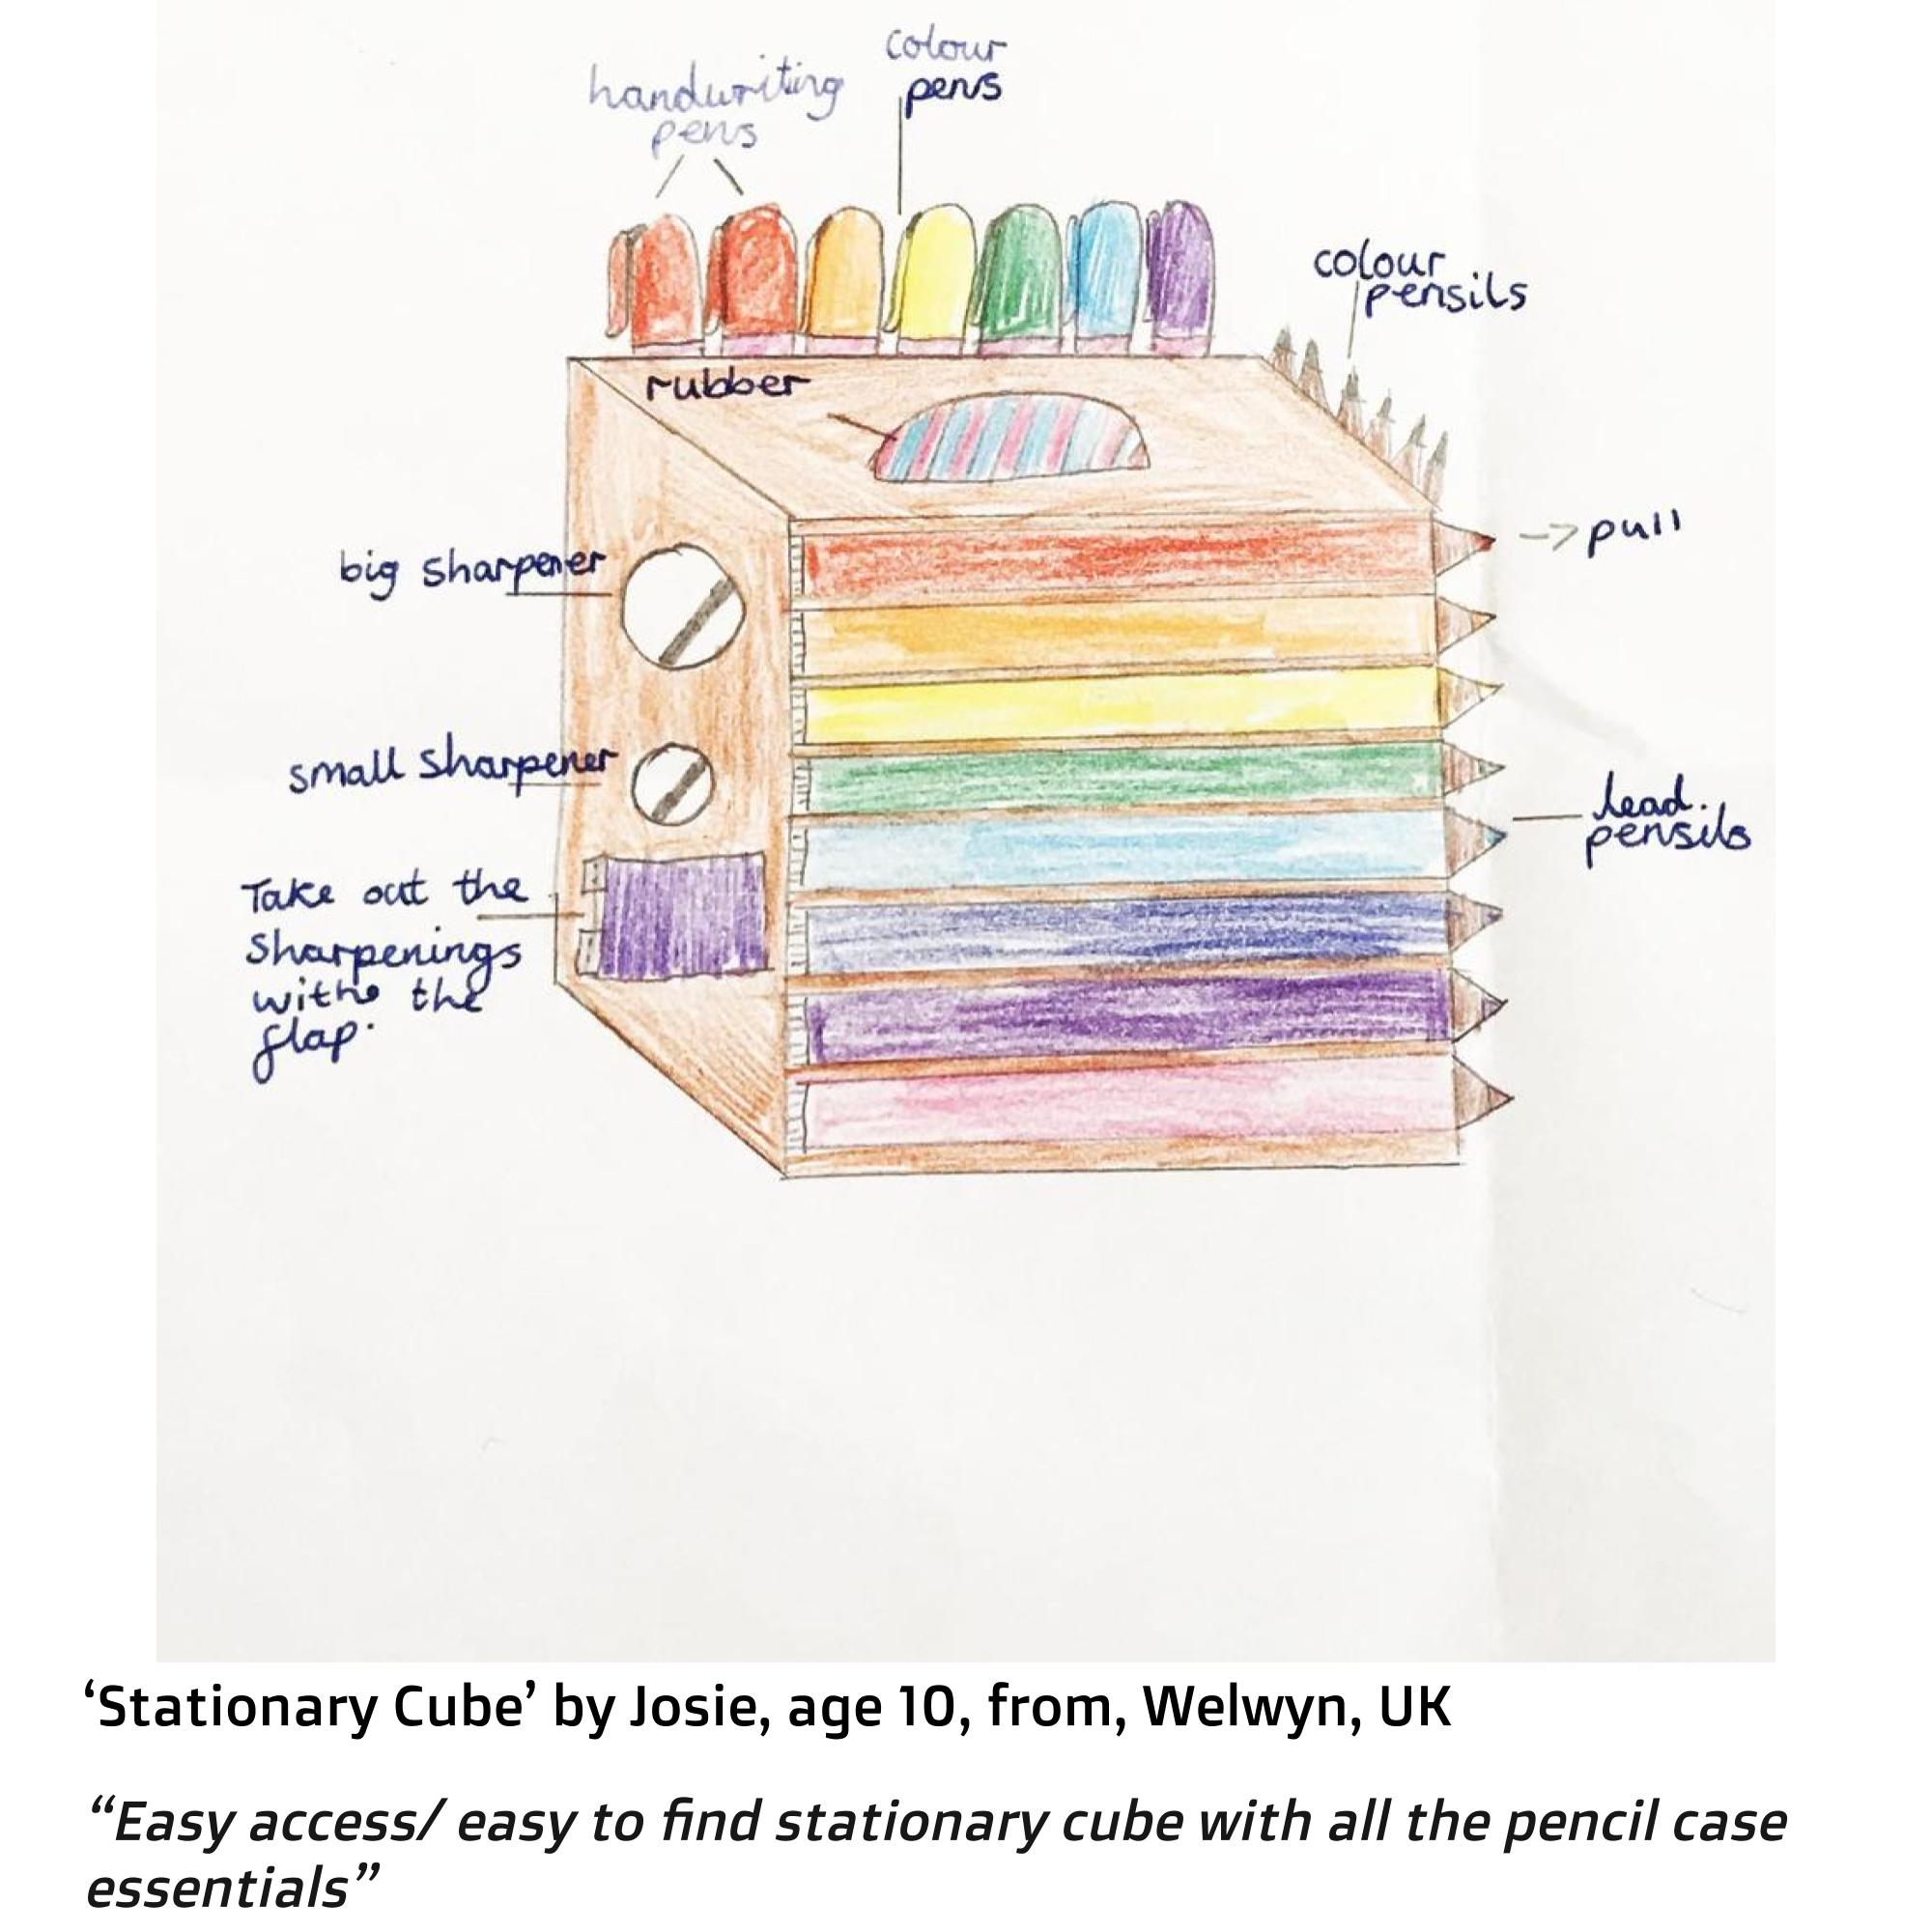 colour
pens
handwriting
pens
colour
pensils
rubber
big sharpener
-> pull
small sharpener
lead.
pensils
Take out the
sharpenings
with the
flap.
‘Stationary Cube’ by Josie, age 10, from, Welwyn, UK
“Easy access/ easy to find stationary cube with all the pencil case
essentials”